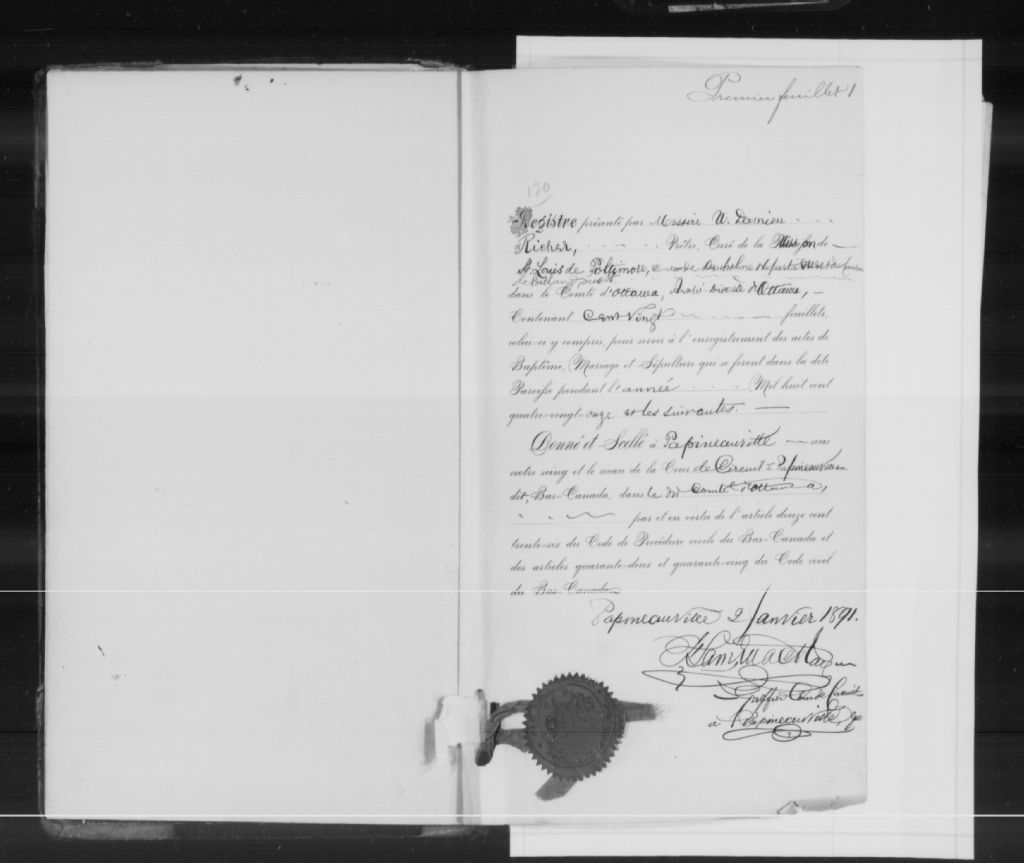 Premier feuillet 1
120
Registre présenté par Messire U. Damien
Richer, Prêtre, Curé de la Mission de
St. Louis de Poltimore, de Denholme et partie
dans le Comté d'Ottawa, Archi Diocèse d'Ottawa,
Contenant Cent Vingt feuillets,
celui-ci y compris, pour servir à l'enregistrement des actes de
Baptême, Mariage et Sépulture qui se feront dans la dite
Paroisse pendant l'année Mil huit cent
quatre-vingt-onze et les suivantes.
Donné et Scellé à Papineauville sous
notre seing et le sceau de la Cour de Circuit à Papineauville
dit, Bas-Canada, dans le dit Comté d'Ottawa,
par et en vertu de l'article douze cent
trente-six du Code de Procédure civile du Bas-Canada et
des articles quarante-deux et quarante-cinq du Code civil
du Bas-Canada.
Papineauville 2 Janvier 1891.
Greffier Cour de Circuit
à Papineauville,